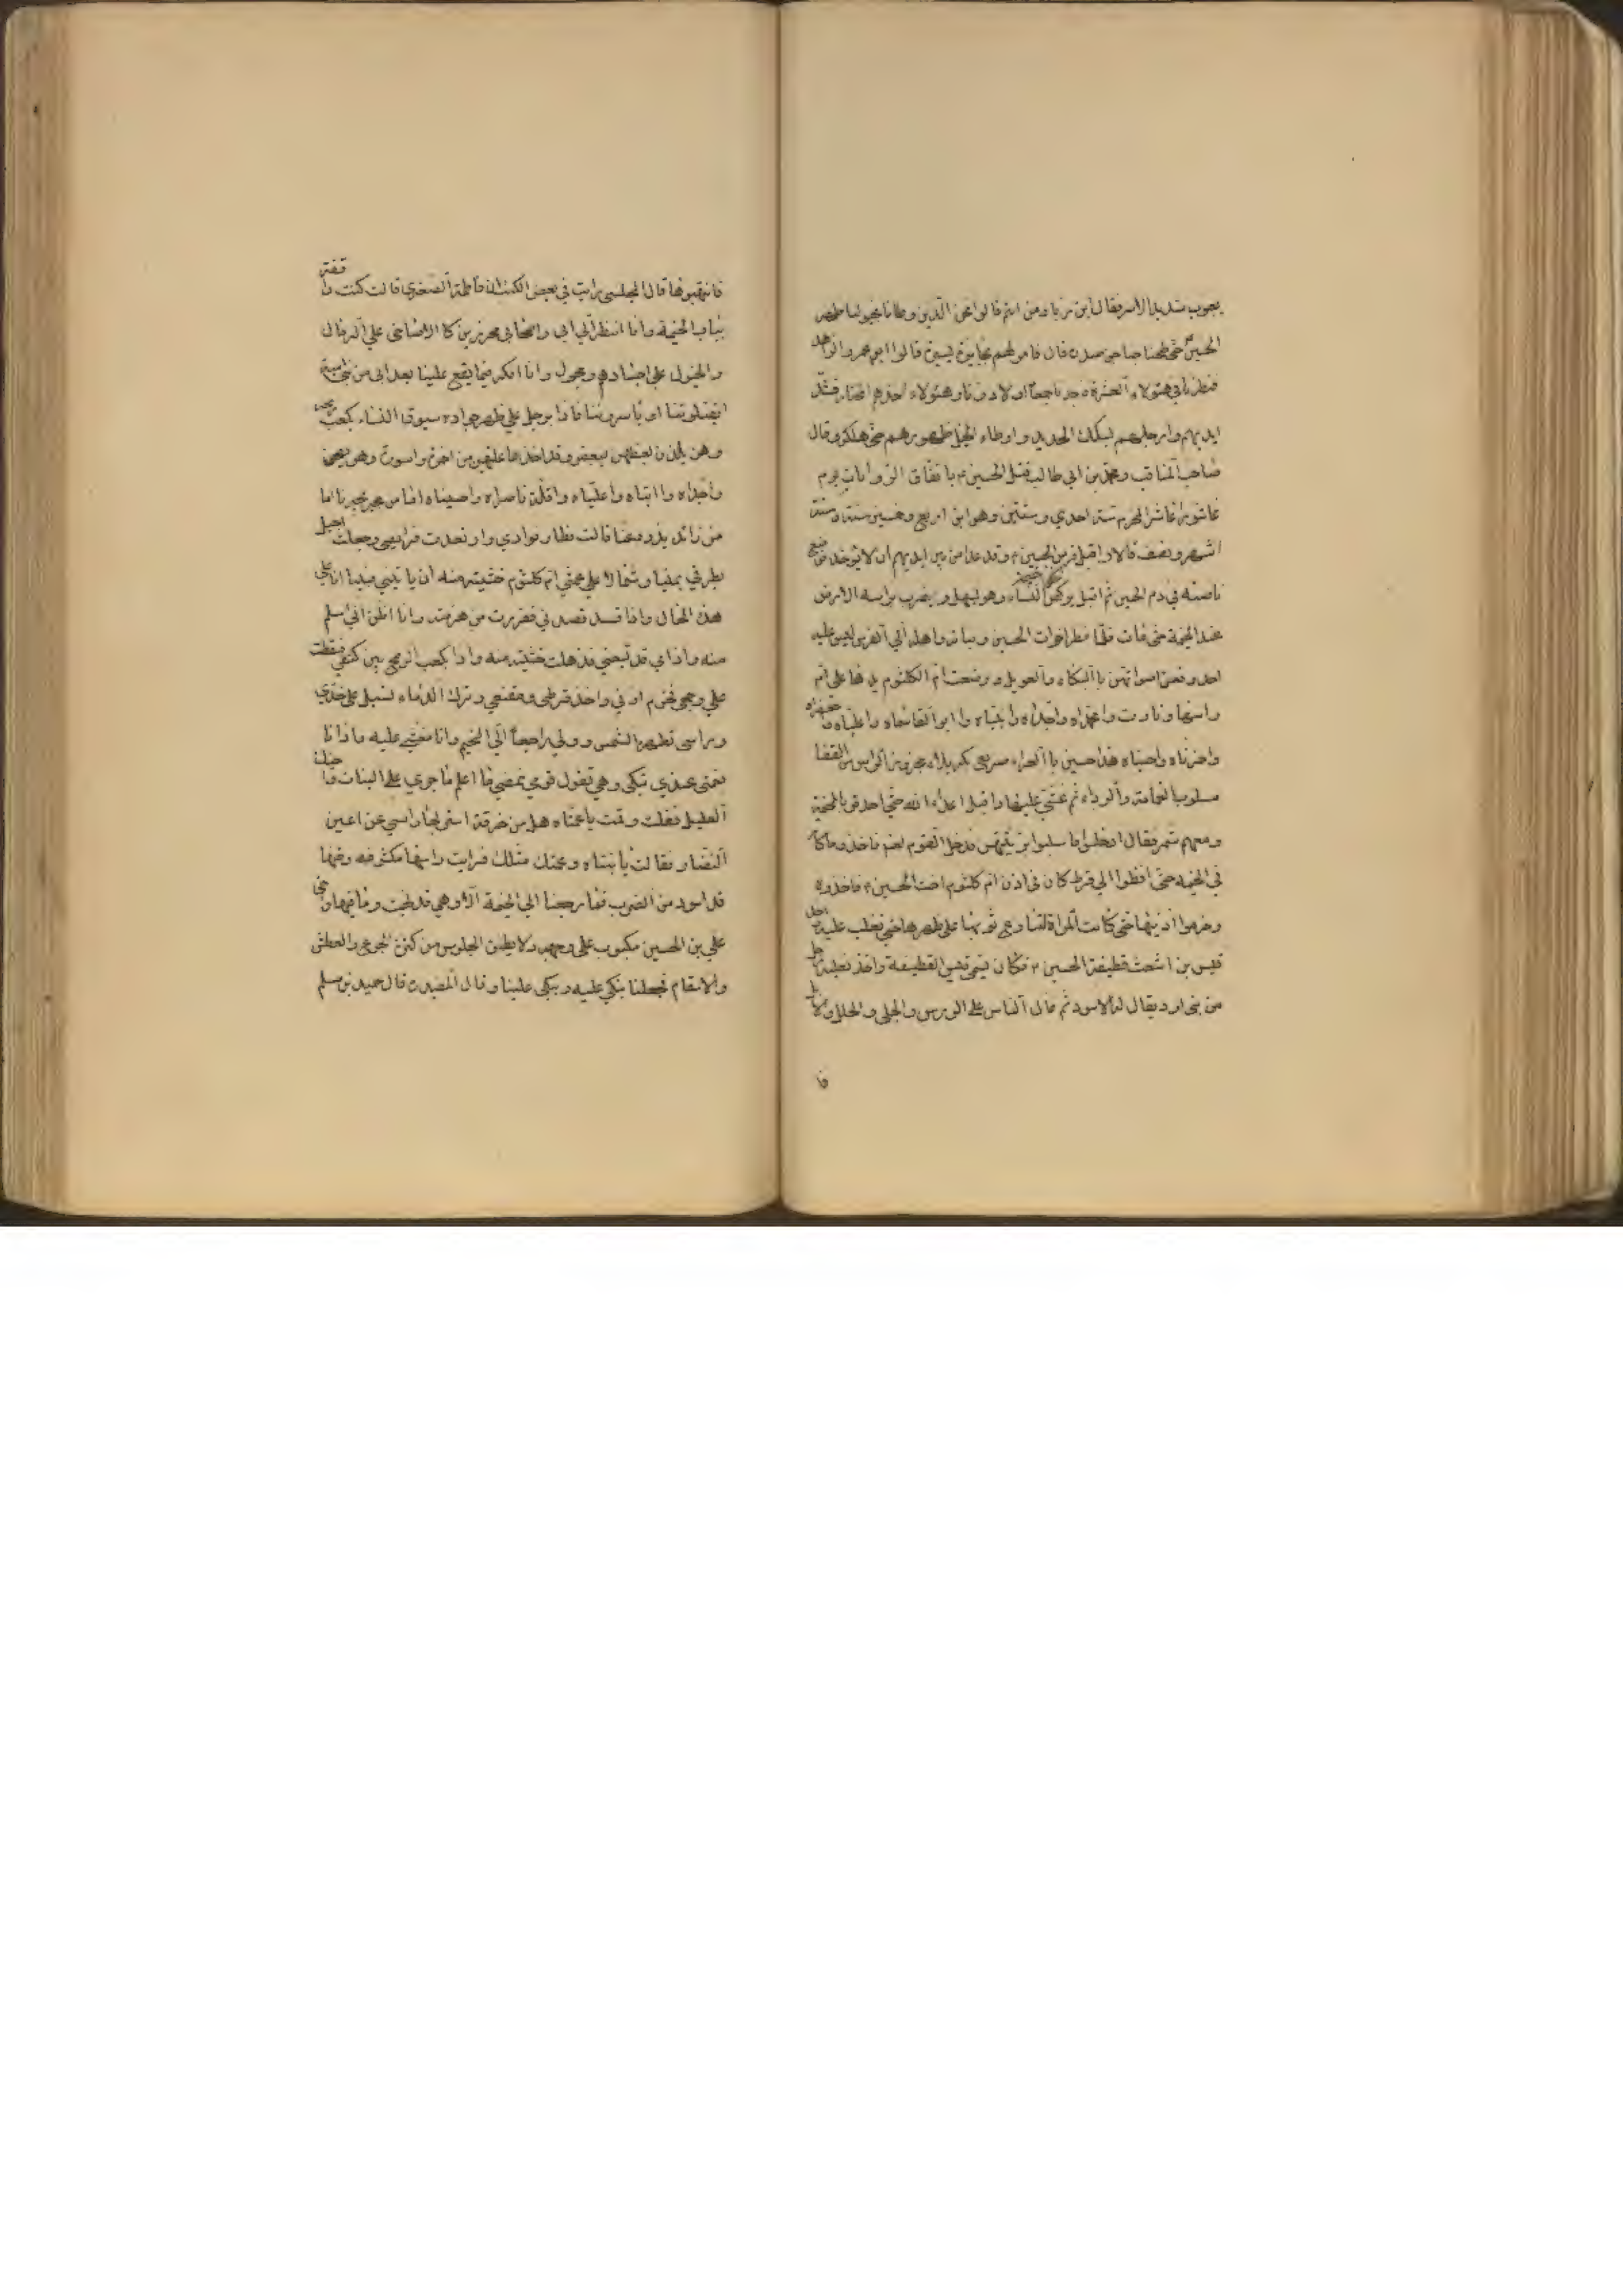 يعبوب شديد الاسر فقال ابن زياد من انتم قالوا نحن الذين وطانا بخيولنا ظهر
الحسين حتى طحنا جناجن صدره قال فامر لهم بجايزة يسيرة قالوا ابو عمرو الزاهد
فنظرنا في هؤلاء العشرة فوجدناهم جميعا اولاد زنا وهؤلاء اخذهم المختار فشد
ايديهم وارجلهم بسكك الحديد واوطاء الخيل ظهورهم حتى هلكوا وقال
صاحب المناقب ومحمد بن ابي طالب قتل الحسين ع باتفاق الروايات يوم
عاشورا عاشر المحرم سنة احدي وستين وهو ابن اربع وخمسين سنة وستة
اشهر ونصف قالا واقبل فرس الحسين ع وقد عدا من بين ايديهم ان لا يوخذ فوضع
ناصيته في دم الحسين ثم اقبل يركض الي خيمة النساء وهو يصهل ويضرب براسه الارض
عند الخيمة حتى مات فلما نظر اخوات الحسين وبناته واهله الي الفرس ليس عليه
احد رفعن اصواتهن بالبكاء والعويل ووضعت ام الكلثوم يدها على ام
راسها ونادت وامحمداه واجداه وانبياه وا ابو القاسماه واعلياه واجعفراه
واحمزتاه واحسناه هذا حسين باالعراء صريع بكربلاء مجزوز الراس من القفا
مسلوب العمامة والرداء ثم غشي عليها واقبل اعداء الله حتى احدقوا بالخيمة
ومعهم شمر فقال ادخلوا فاسلبوا بزيتهن فدخل القوم لعنهم فاخذوا ما كان
في الخيمه حتى افظوا الي قرط كان في اذن ام كلثوم اخت الحسين ع فاخذوه
وخرموا اذنيها حتى كانت المراة لتنازع ثوبها على ظهرها حتى تغلب عليه واخذ
قيس بن اشعث قطيفة الحسين ع فكان يسمى قيس القطيفة واخذ نعليه رجل
من بني اود يقال له الاسود ثم مال الناس على الورس والحلي والحلل والابل
فا
فانتهبوها قال المجلسي رايت في بعض الكتب ان فاطمة الصغري قالت كنت واقفة
بباب الخيمة وانا انظر الي ابي واصحابي مجزرين كالاضاحي علي الرمال
والخيول على اجسادهم تجول وانا افكر فيما يقع علينا بعد ابي من بني امية
ايقتلوننا او ياسروننا فاذا برجل علي ظهر جواده يسوق النساء بكعب رمحه
وهن يلذن بعضهن ببعض وقد اخذ ما عليهن من اخمرة واسورة وهن يصحن
واجداه وا ابتاه واعلياه واقلة ناصراه واحسناه اما من مجير يجيرنا اما
من زائد يذود عنا قالت فطار فوادي وارتعدت فرايصي وجعلت اجيل
بطرفي يمينا وشمالا على عمتي ام كلثوم خشية منه ان ياتيني فبينا انا علي
هذه الحال واذا به قد قصدني ففررت منهزمة وانا اظن اني اسلم
منه واذا به قد تبعني فذهلت خشية منه واذا بكعب الرمح بين كتفي فسقطت
علي وجهي فخرم اذني واخذ قرطي ومقنعي وترك الدماء تسيل على خدي
وراسي تظهره الشمس وولي راجعا الي الخيم وانا مغشي عليه واذا انا
بعمتي عندي تبكي وهي تقول قومي نمضي ما اعلم ما جري علي البنات واخيك
العليل فقلت وقمت يا عمتاه هل من خرقة استر بها راسي عن اعين
النظار فقالت يا بنتاه وعمتك مثلك فرايت راسها مكشوفه ومتنها
قد اسود من الضرب فما رجعنا الي الخيمة الا وهي قد نهبت وما فيها واخي
علي بن الحسين مكبوب علي وجهه ولا يطيق الجلوس من كثرة الجوع والعطش
والاسقام فجعلنا نبكي عليه ويبكي علينا وقال المفيد ره قال حميد بن مسلم